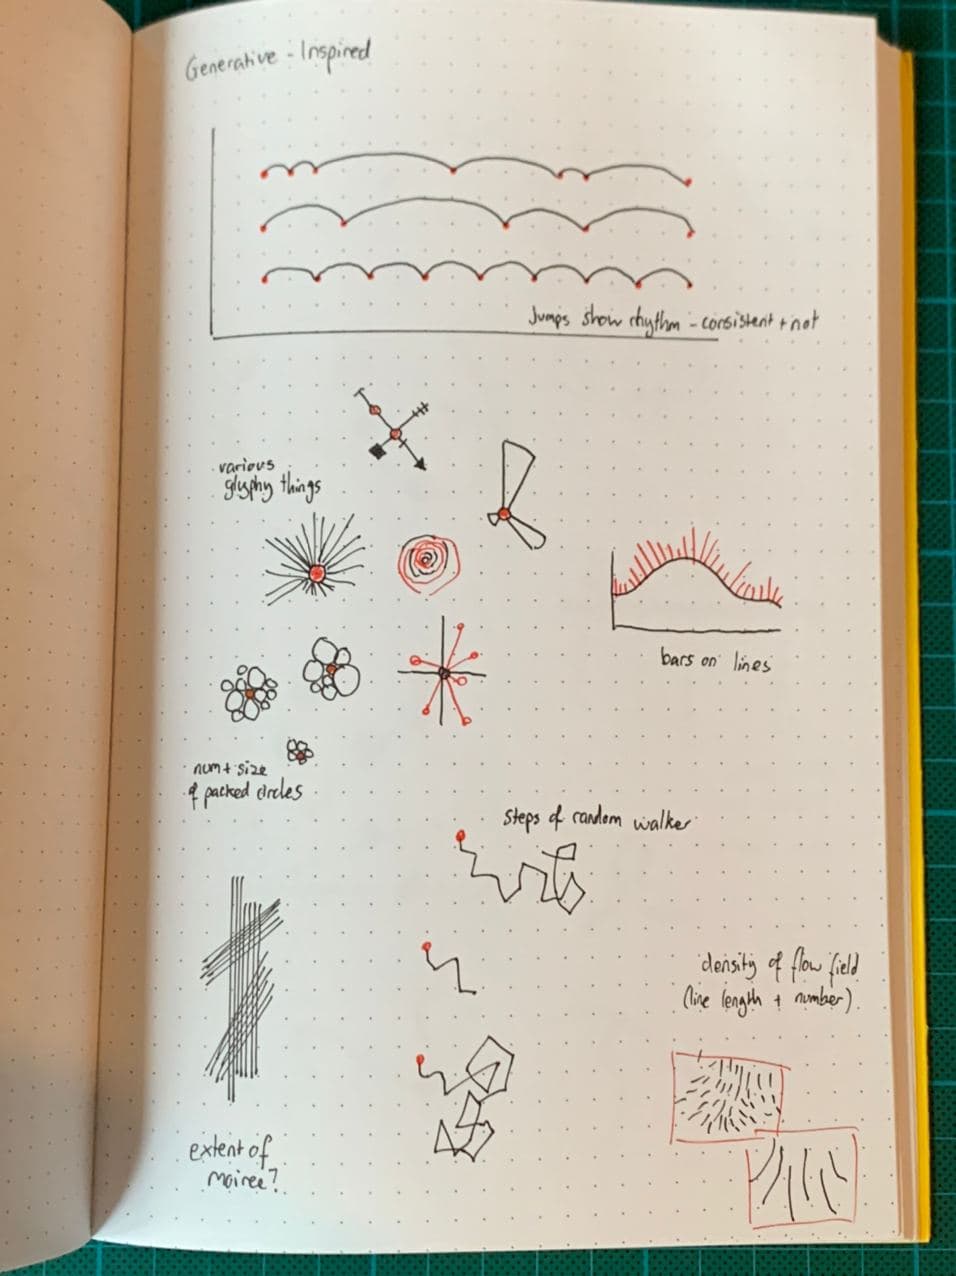 Generative - Inspired
Jumps show rhythm - consistent + not
various
glyphy things
bars on lines
num + size
of packed circles
Steps of random walker
density of flow field
(line length + number).
extent of
moiree?